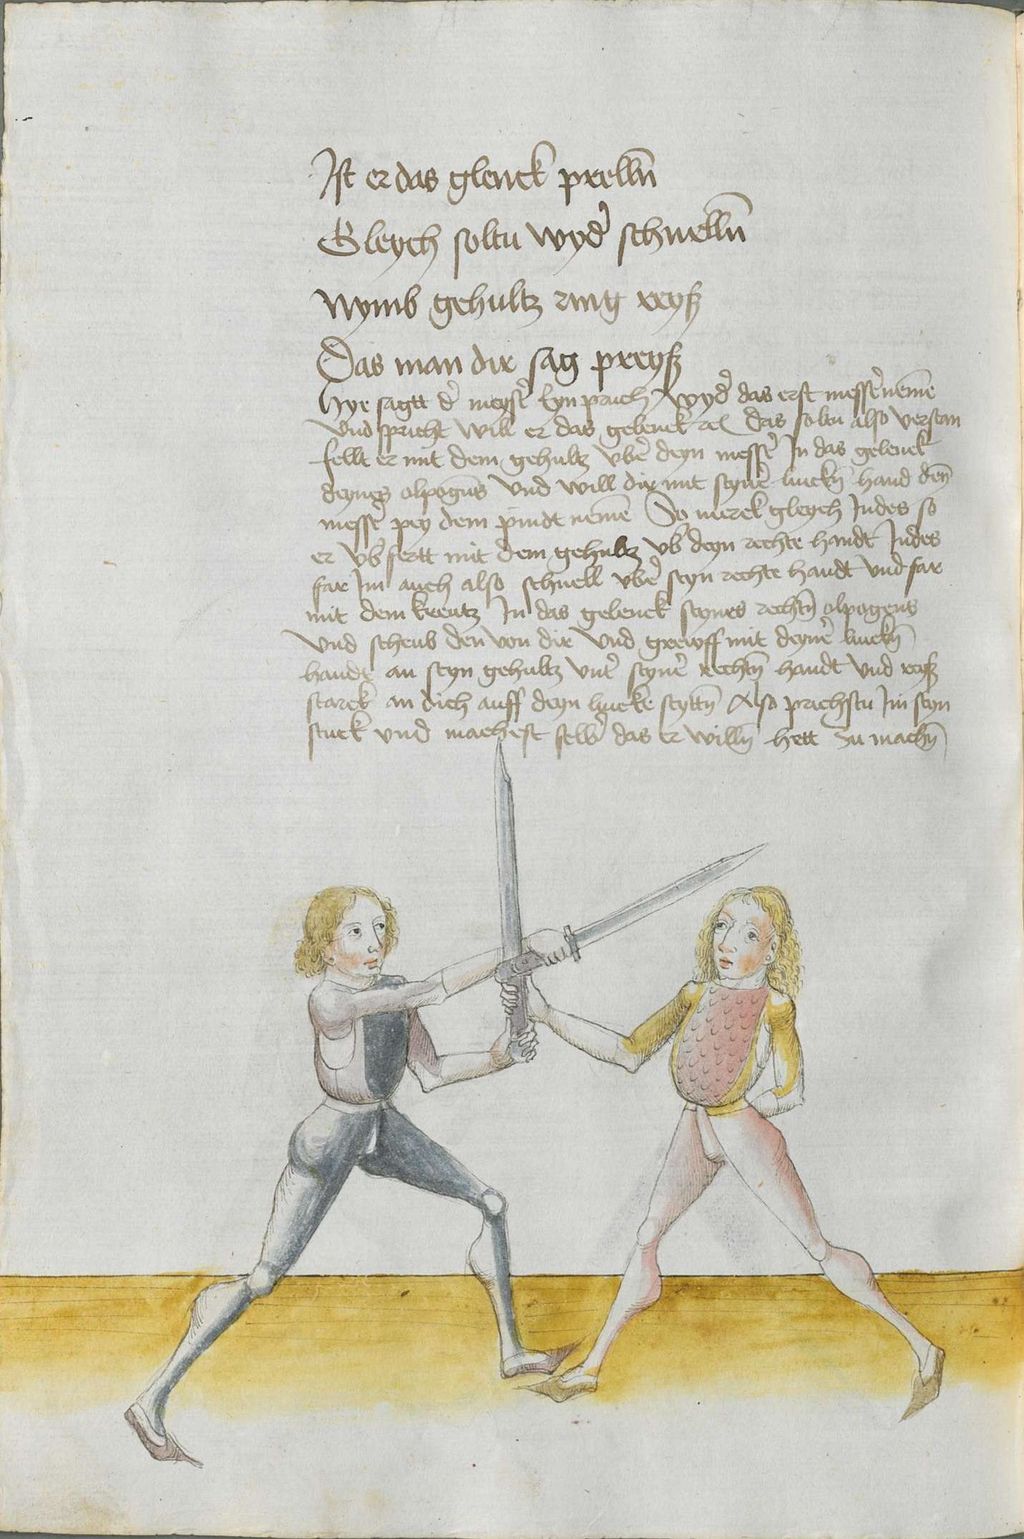 Ist er das glenck prelln̄
Gleych soltu wyd' schnelln̄
Nymb gehultz ring reyß
Das man dir sag preyß
Hye sagtt d' meyst' eyn pruch wyd' das erst mess'nemē
vnd spricht will er das gelenck ꝛc das soltu also verstan
fellt er mit dem gehultz vbe' deyn mess' In das gelenck
deynes elpogn̄s vnd will dir mit seyne' linckn̄ hand den̄
mess' pey dem pindt nemē So merck gleych Indes so
er vb'fertt mit dem gehultz vb' deyn rechte handt Indes
far Im auch also schnell vbe' seyn rechte handt vnd far
mit dem kreutz In das gelenck seynes rechtn̄ elpogens
vnd scheub den von dir vnd greyff mit deyne' linckn̄
handt an seyn gehultz vnt' seyne' rechtn̄ handt vnd reyß
starck an dich auff deyn lincke seyttn̄ Also prichstu Im seyn
stuck vnd machest selb' das er willn̄ hett zu machn̄